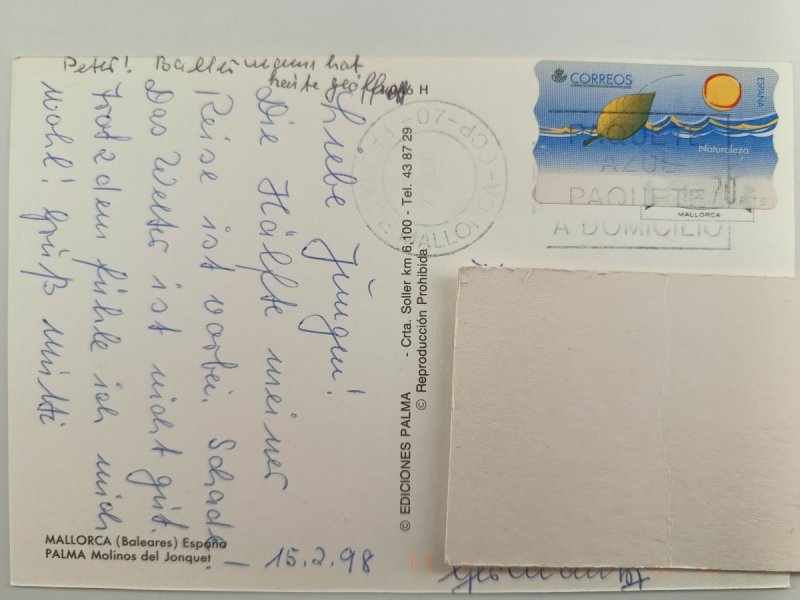 Peter! Ballermann hat
heute geöffnet
Liebe Jungen!
Die Hälfte meiner
Reise ist vorbei. Schade! –
Das Wetter ist nicht gut.
Trotzdem fühle ich mich
wohl! Gruß Mutti
15.2.98
MALLORCA (Baleares) España
PALMA Molinos del Jonquet
© EDICIONES PALMA - Crta. Soller km 6,100 - Tel. 43 87 29
© Reproducción Prohibida
CORREOS
ESPAÑA
Naturaleza
PTS
PAQUETE
AZUL
PAQUETE
A DOMICILIO
MALLORCA
Germany